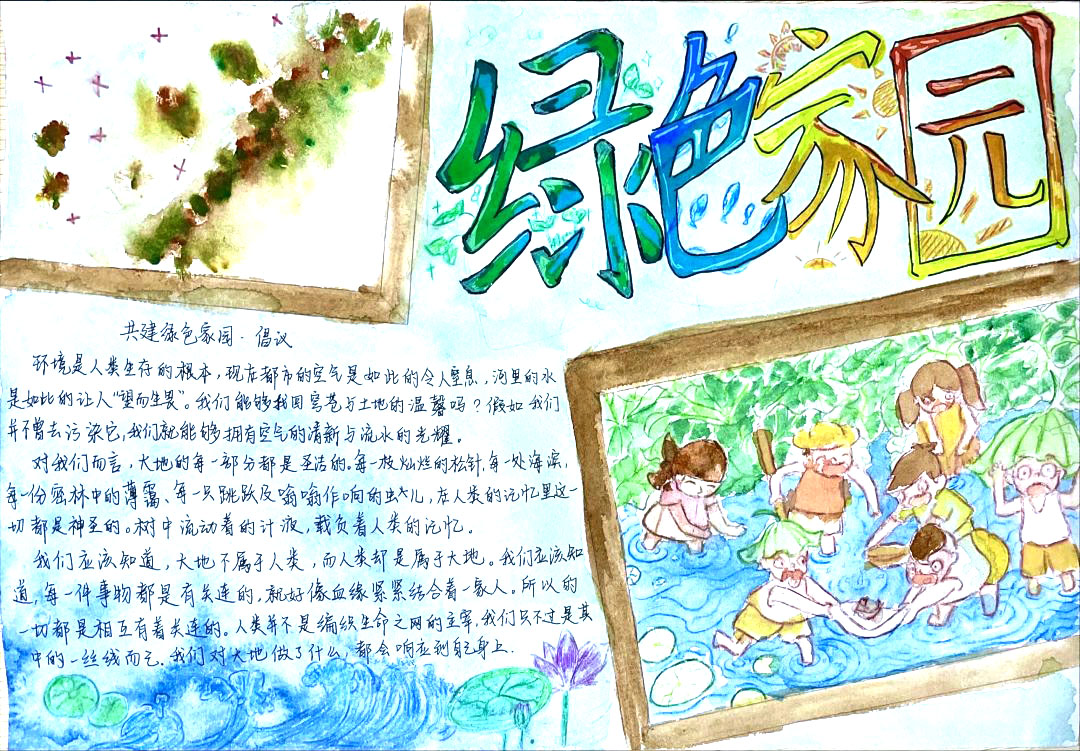 绿色家园
共建绿色家园·倡议
环境是人类生存的根本，现在都市的空气是如此的令人窒息，河里的水
是如此的让人“望而生畏”。我们能够找回穹苍与土地的温馨吗？假如我们
并不曾去污染它，我们就能够拥有空气的清新与流水的光耀。
对我们而言，大地的每一部分都是圣洁的。每一枝灿烂的松针，每一处海滨，
每一份密林中的薄霭、每一只跳跃及嗡嗡作响的虫儿，在人类的记忆里这一
切都是神圣的。树中流动着的汁液，载负着人类的记忆。
我们应该知道，大地不属于人类，而人类却是属于大地。我们应该知
道，每一件事物都是有关连的，就好像血缘紧紧结合着一家人。所以的
一切都是相互有着关连的。人类并不是编织生命之网的主宰，我们只不过是其
中的一丝线而已。我们对大地做了什么，都会响应到自己身上.